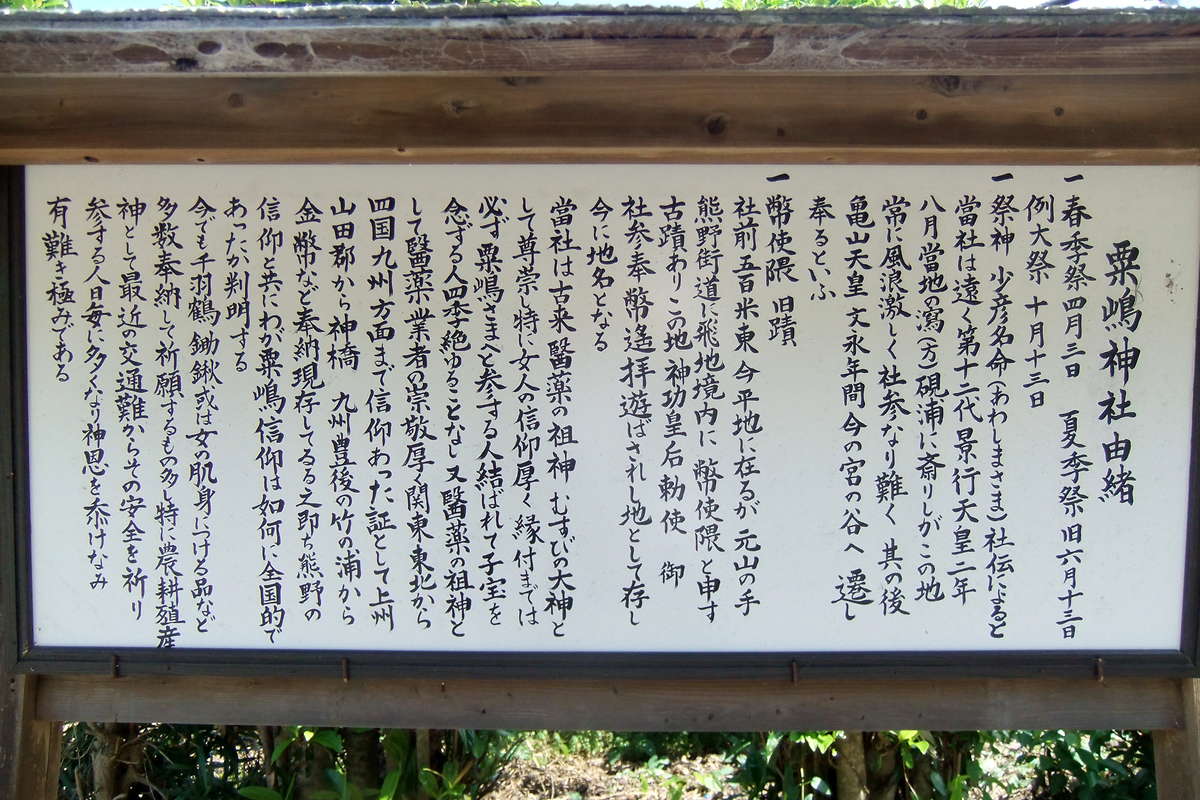 粟嶋神社由緒
一 春季祭 四月三日 夏季祭 旧六月十三日
例大祭 十月十三日
一 祭神 少彦名命(あわしまさま)社伝によると
當社は遠く第十二代景行天皇二年
八月當地の瀉(方)硯浦に斎りしがこの地
常に風浪激しく社参なり難く 其の後
亀山天皇 文永年間今の宮の谷へ 遷し
奉るといふ
一 幣使隈 旧蹟
社前五百米東 今平地に在るが 元山の手
熊野街道に飛地境内に 幣使隈と申す
古蹟あり この地 神功皇后勅使 御
社参奉幣遙拝遊ばされし地として存し
今に地名となる
當社は古来 醫薬の祖神 むすびの大神と
して尊崇し特に女人の信仰厚く縁付までは
必ず 粟嶋さまへと参ずる人結ばれて子宝を
念ずる人四季絶ゆることなし 又醫薬の祖神と
して醫薬業者の崇敬厚く関東東北から
四国九州方面まで信仰あった証として上州
山田郡から神橋 九州豊後の竹の浦から
金幣など奉納現存してゐる之即ち熊野の
信仰と共にわが粟嶋信仰は如何に全国的で
あったか判明する
今でも千羽鶴 鋤鍬或は女の肌身につける品など
多数奉納して祈願するもの多し特に農耕殖産
神として最近の交通難からその安全を祈り
参ずる人日毎に多くなり神恩を忝けなみ
有難き極みである